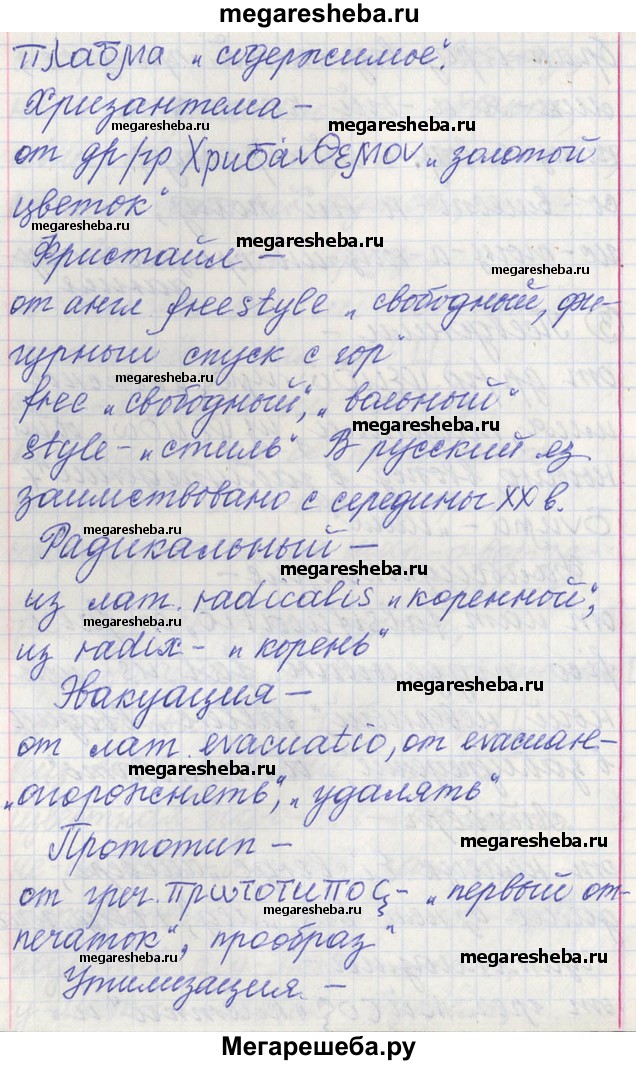 megaresheba.ru
плабма „содержимое“.
megaresheba.ru
Хризантема –
megaresheba.ru megaresheba.ru
от др/гр Хрибάνθεμον „золотой
цветок“
megaresheba.ru
megaresheba.ru
Фристайл –
от англ freestyle „свободный, фи-
гурный спуск с гор“
megaresheba.ru megaresheba.ru
free „свободный“, „вольный“
style – „стиль“ В русский яз
megaresheba.ru
заимствовано с середины XX в.
megaresheba.ru
Радикальный –
megaresheba.ru
из лат. radicalis „коренной“,
megaresheba.ru
из radix – „корень“
Эвакуация –
megaresheba.ru
от лат. evacuatio, от evacuan-
megaresheba.ru
„опорожнять“, „удалять“
Прототип –
megaresheba.ru
от греч. πρωτοτιπος – „первый от-
megaresheba.ru
печаток“, прообраз“
megaresheba.ru
Утилизация. –
megaresheba.ru
Мегарешеба.ру